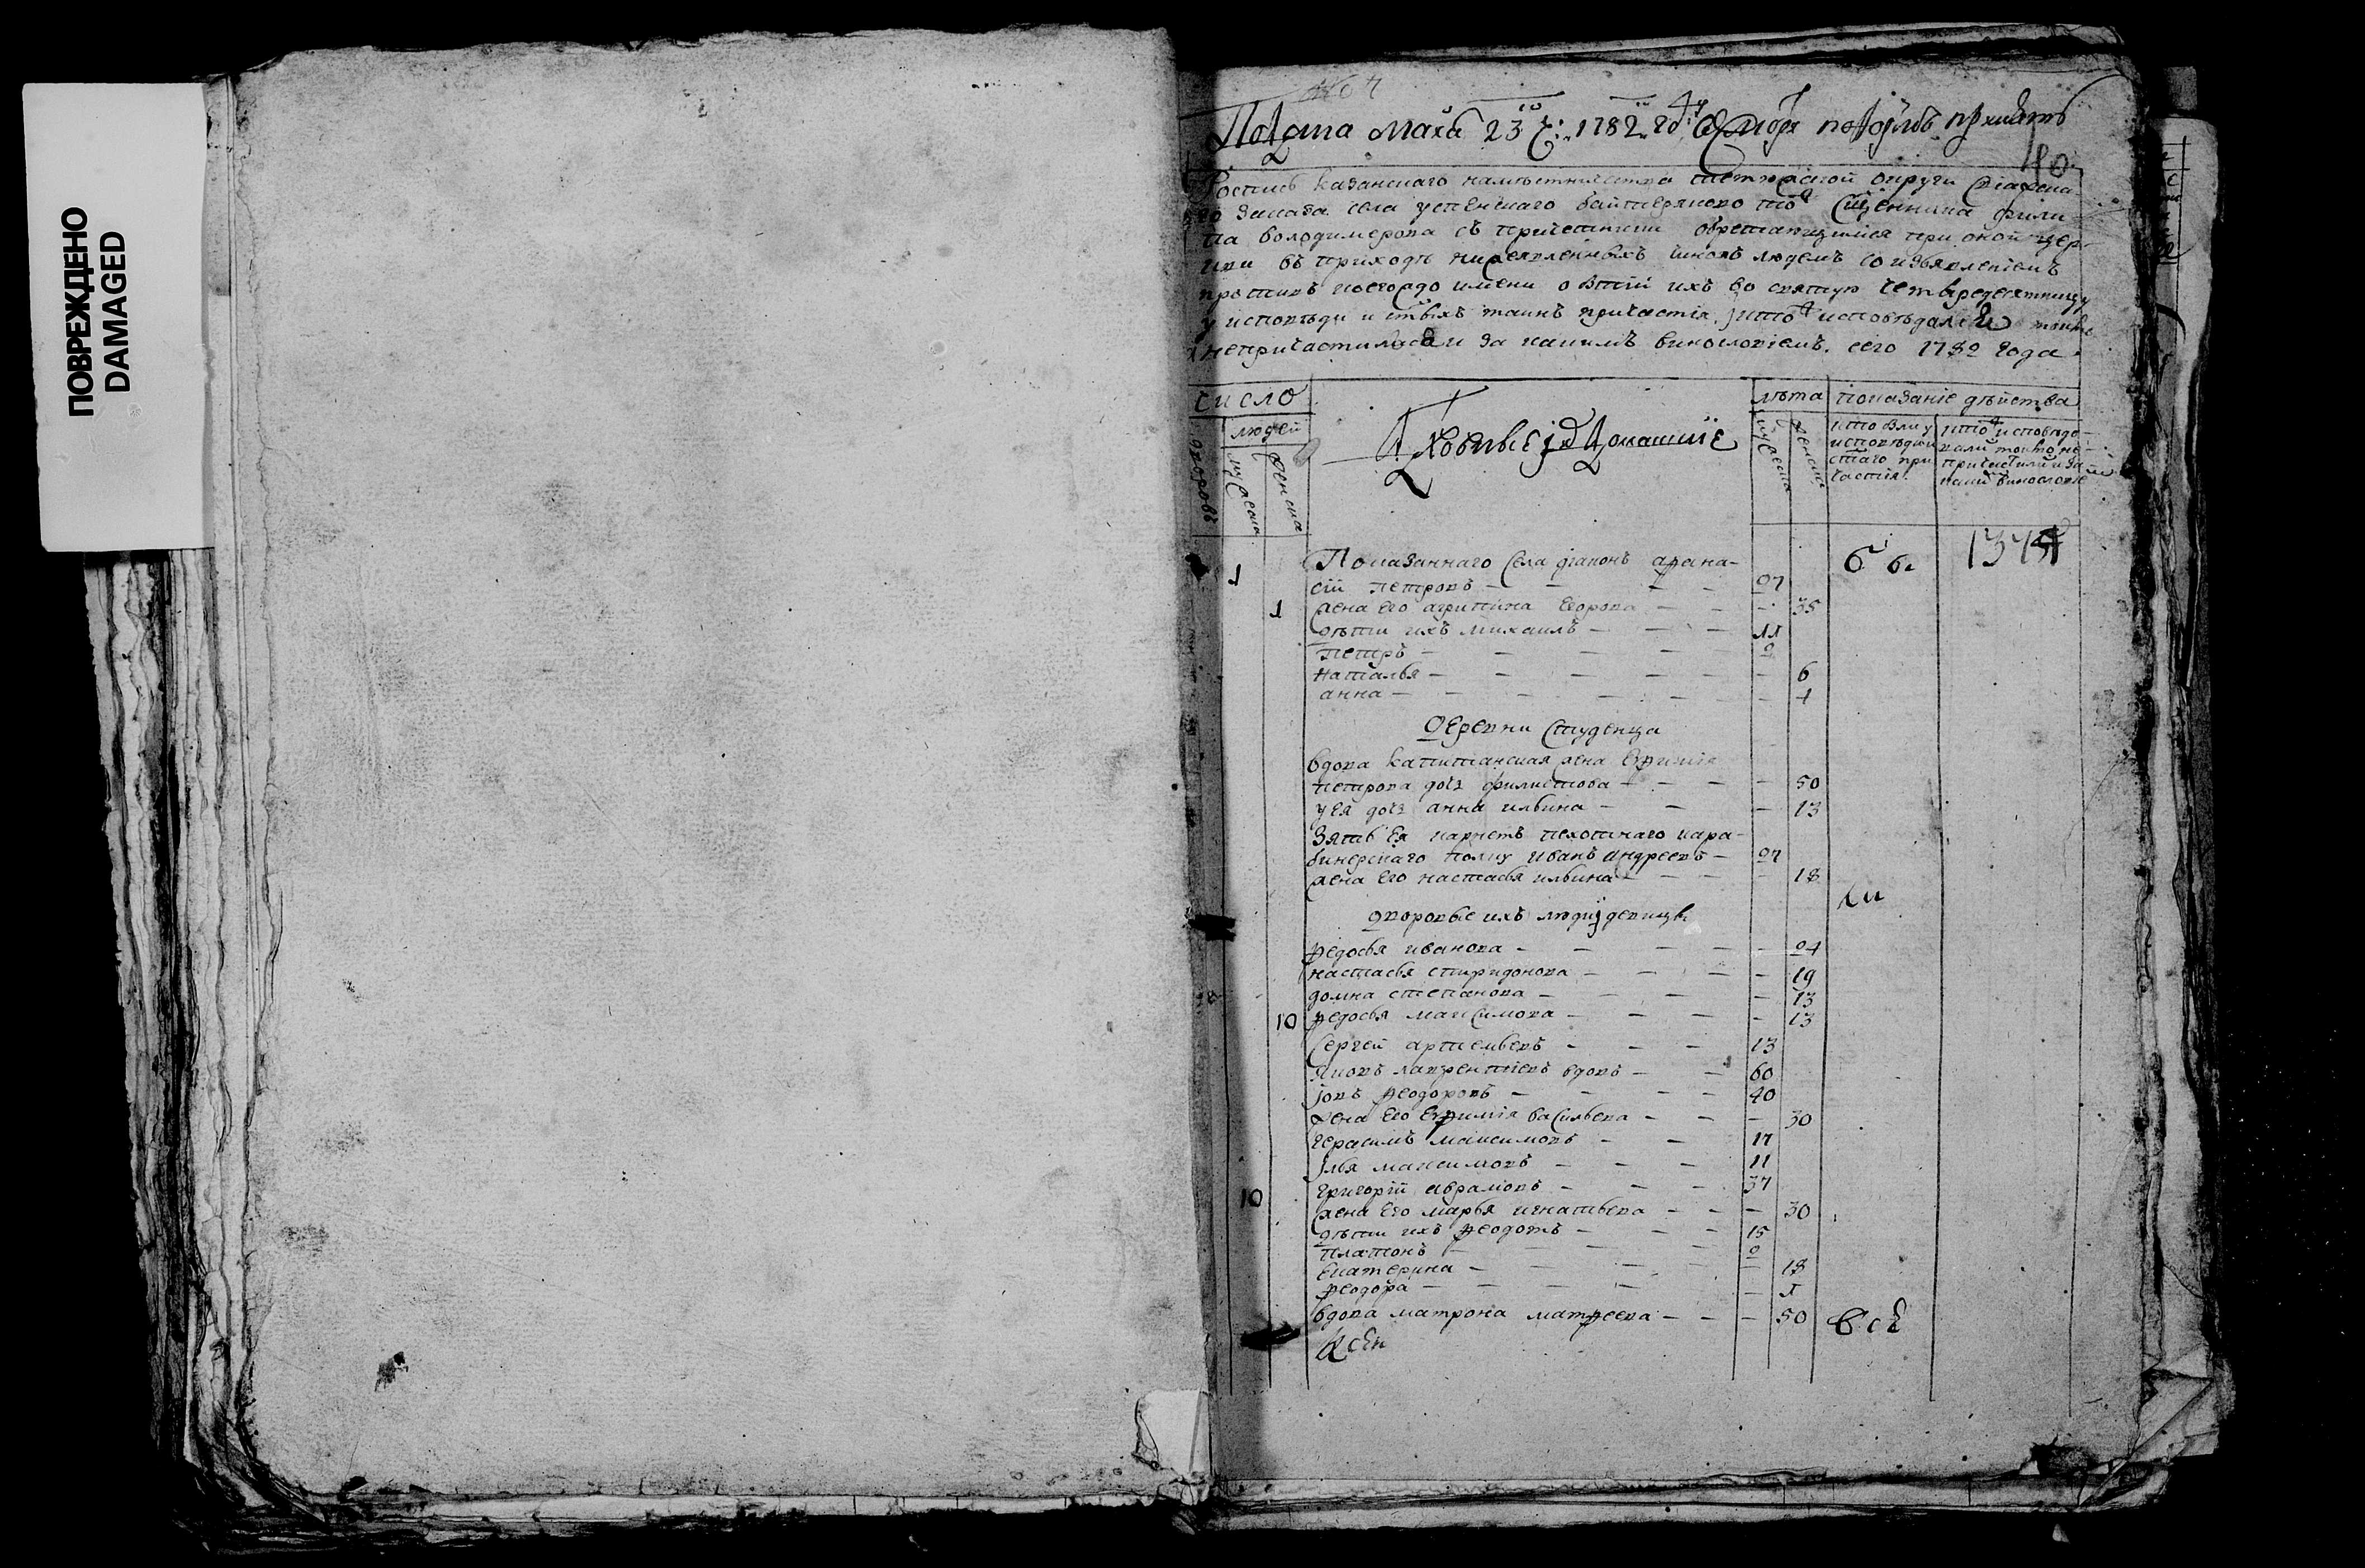 ПОВРЕЖДЕНО
DAMAGED
Подана маиа 23 ч: 1782 го
40
Роспись казанскаго наместничества тетюшской округи
заказа села успенскаго тожъ Сщенника фили
па володимерова съ причетники обретающимися при оной цер
кви въ приходе нижеявленныхъ чиновъ людемъ со изъявлениемъ
противъ коегождо имени о бытіи ихъ во святую четыредесятницу
у исповеди и стыхъ таинъ причастія, и кто исповедался токмо
непричастился и за какимъ винословіемъ. сего 1782 года.
Число
дворовъ
людей
мужеска
женска
Духовные и ихъ домашние
лѣта
мужеска
женска
показаніе дѣйства
кто были у
исповеди и
стаго при
частия
кто исповедо
вали токмо не
причастили и за
каки винословіе
1 Показаннаго села диаконъ афана-
сіи петровъ — 27
1 жена его агрипина егорова — 35
дѣти ихъ михаилъ — 11
петръ — 2
наталья — 6
анна — 4
деревни Студенца
вдова капитанская жена
петрова дочь филистова — 50
у ея дочь анна ильина — 13
Зять ея карнетъ пехотнаго кара-
бинернаго полку иванъ андреевъ — 27
жена его настасья ильина — 18
дворовые ихъ люди девицы
федосья иванова — 24
настасья спиридонова — 19
домна степанова — 13
10 федосья максимова — 13
Сергей артемьевъ — 13
яковъ лаврентиевъ вдовъ — 60
іовъ феодоровъ — 40
жена его ефимия васильева — 30
герасимъ максимовъ — 17
илья максимовъ — 11
10 григоріи аврамовъ — 37
жена его марья игнатьева — 30
дѣти ихъ феодотъ — 15
платонъ — 2
екатерина — 18
феодора —
вдова матрона матфеева — 50 всѣ